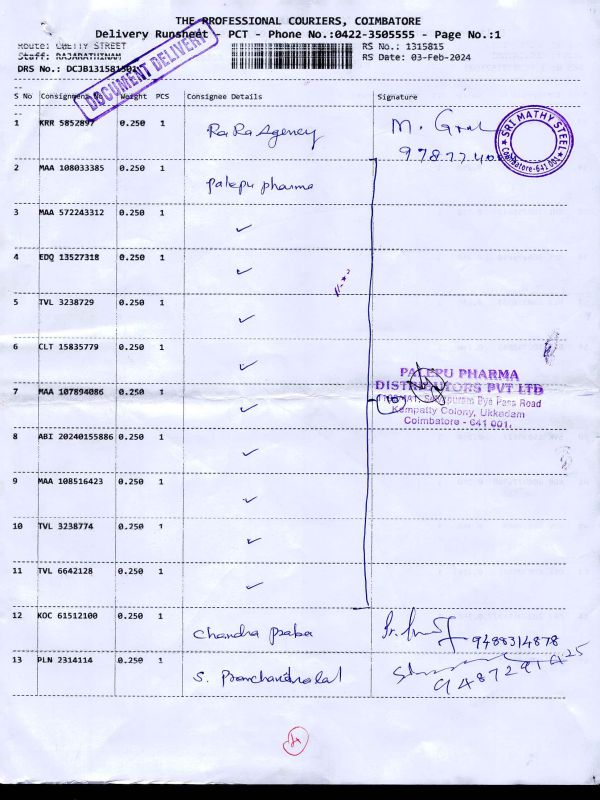 THE PROFESSIONAL COURIERS, COIMBATORE
Delivery Runsheet - PCT - Phone No.:0422-3505555 - Page No.:1
Route: CHETTY STREET
RS No.: 1315815
Staff: RAJARATHINAM
RS Date: 03-Feb-2024
DRS No.: DCJB1315815
DOCUMENT DELIVERY
S No Consignment No Weight PCS Consignee Details Signature
1 KRR 5852897 0.250 1 RaRa Agency M.
SRI MATHY STEEL
Coimbatore-641 001.
2 MAA 108033385 0.250 1 palepu pharma
3 MAA 572243312 0.250 1 ✓
4 EDQ 13527318 0.250 1 ✓
5 TVL 3238729 0.250 1 ✓
6 CLT 15835779 0.250 1 ✓
7 MAA 107894086 0.250 1 ✓
PALEPU PHARMA
DISTRIBUTORS PVT LTD
Bye Pass Road
Kempatty Colony, Ukkadam
Coimbatore - 641 001.
(10)
8 ABI 20240155886 0.250 1 ✓
9 MAA 108516423 0.250 1 ✓
10 TVL 3238774 0.250 1 ✓
11 TVL 6642128 0.250 1 ✓
12 KOC 61512100 0.250 1 Chandra praba 9488314878
13 PLN 2314114 0.250 1 S. 9487291425